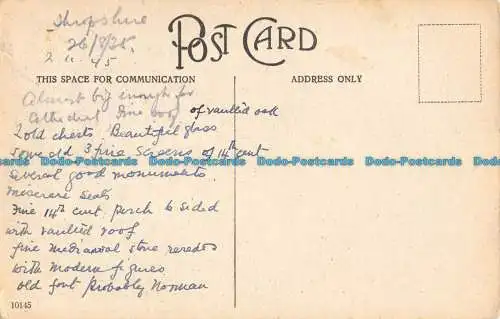 Shropshire
26/8/25.
2. 11. 45
POST CARD
THIS SPACE FOR COMMUNICATION
ADDRESS ONLY
Almost big enough for
Cathedral Fine roof of vaulted oak
2 old chests Beautiful glass
some old 3 fine screens of 14th cent
Several good monuments
Miserere Seats
Fine 14th cent. porch 6 sided
with vaulted roof
fine mediaeval stone reredos
with modern figures
old font probably Norman
10145
Todd-Postcards Todd-Postcards Todd-Postcards Todd-Postcards Todd-Postcards